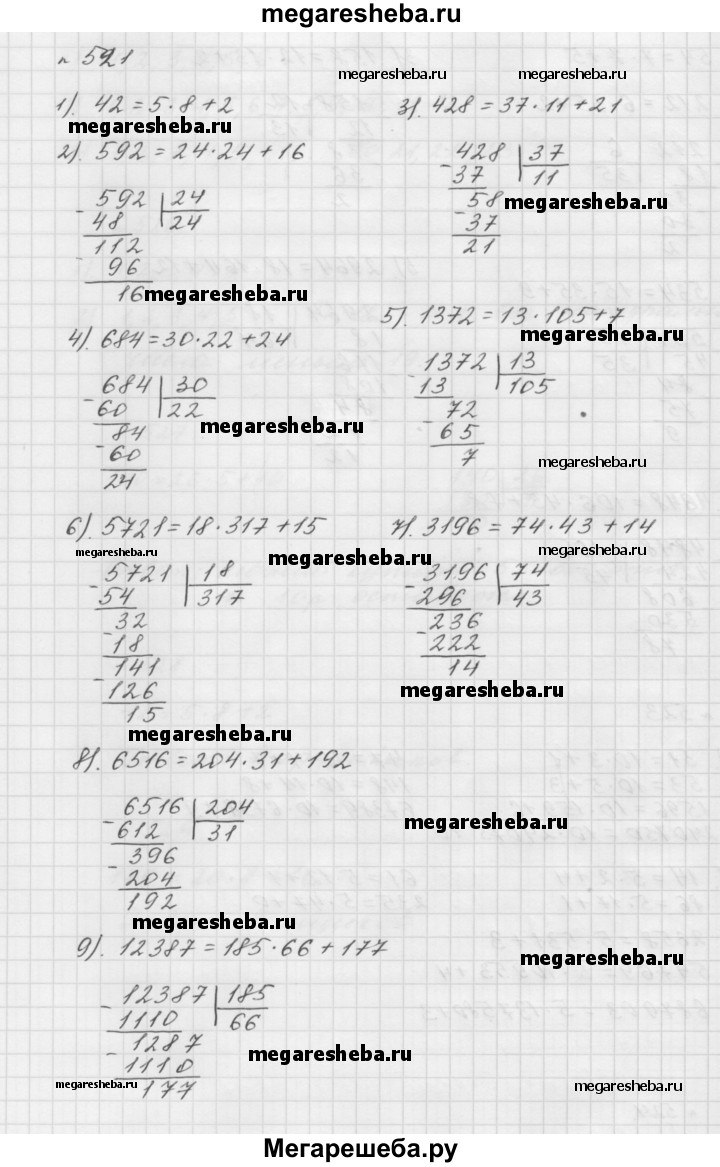 megaresheba.ru
№ 521
megaresheba.ru megaresheba.ru
1). 42 = 5·8+2
megaresheba.ru
2). 592 = 24·24+16
592 24
48 24
112
96
16
megaresheba.ru
3). 428 = 37·11+21
428 37
37 11
58
37
21
megaresheba.ru
4). 684=30·22+24
684 30
60 22
84
60
24
megaresheba.ru
5). 1372=13·105+7
megaresheba.ru
1372 13
13 105
72
65
7
megaresheba.ru
6). 5721=18·317+15
megaresheba.ru
5721 18
54 317
32
18
141
126
15
megaresheba.ru
megaresheba.ru
7). 3196 = 74·43+14
megaresheba.ru
3196 74
296 43
236
222
14
megaresheba.ru
8). 6516=204·31+192
6516 204
612 31
396
204
192
megaresheba.ru
megaresheba.ru
9). 12387=185·66+177
megaresheba.ru
12387 185
1110 66
1287
1110
177
megaresheba.ru
megaresheba.ru
megaresheba.ru
Мегарешеба.ру